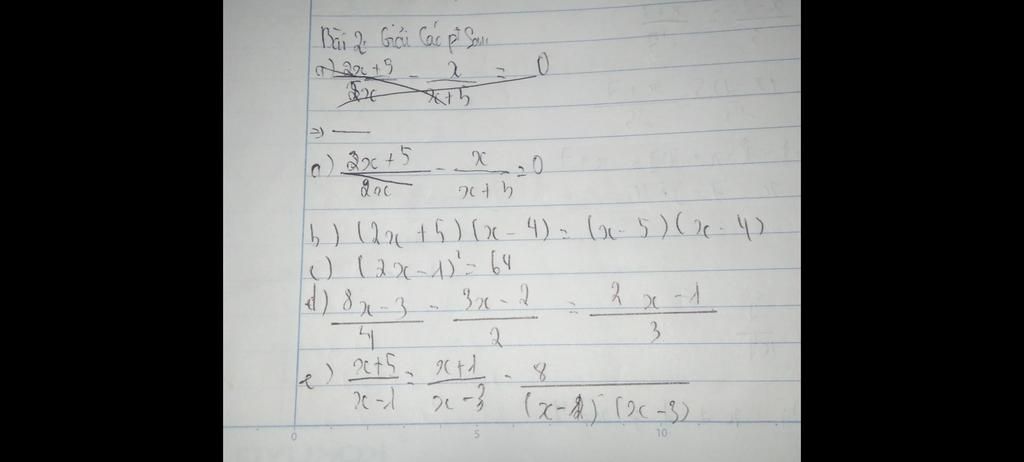 Bài 2: Giải các pt sau:
a) (2x+5)/(2x) - x/(x+5) = 0
=>
a) (2x+5)/(2x) - x/(x+5) = 0
b) (2x+5)(x-4) = (x-5)(x-4)
c) (2x-1)² = 64
d) (8x-3)/4 - (3x-2)/2 = (2x-1)/3
e) (x+5)/(x-1) = (x+1)/(x-3) - 8/((x-1)(x-3))
0 5 10